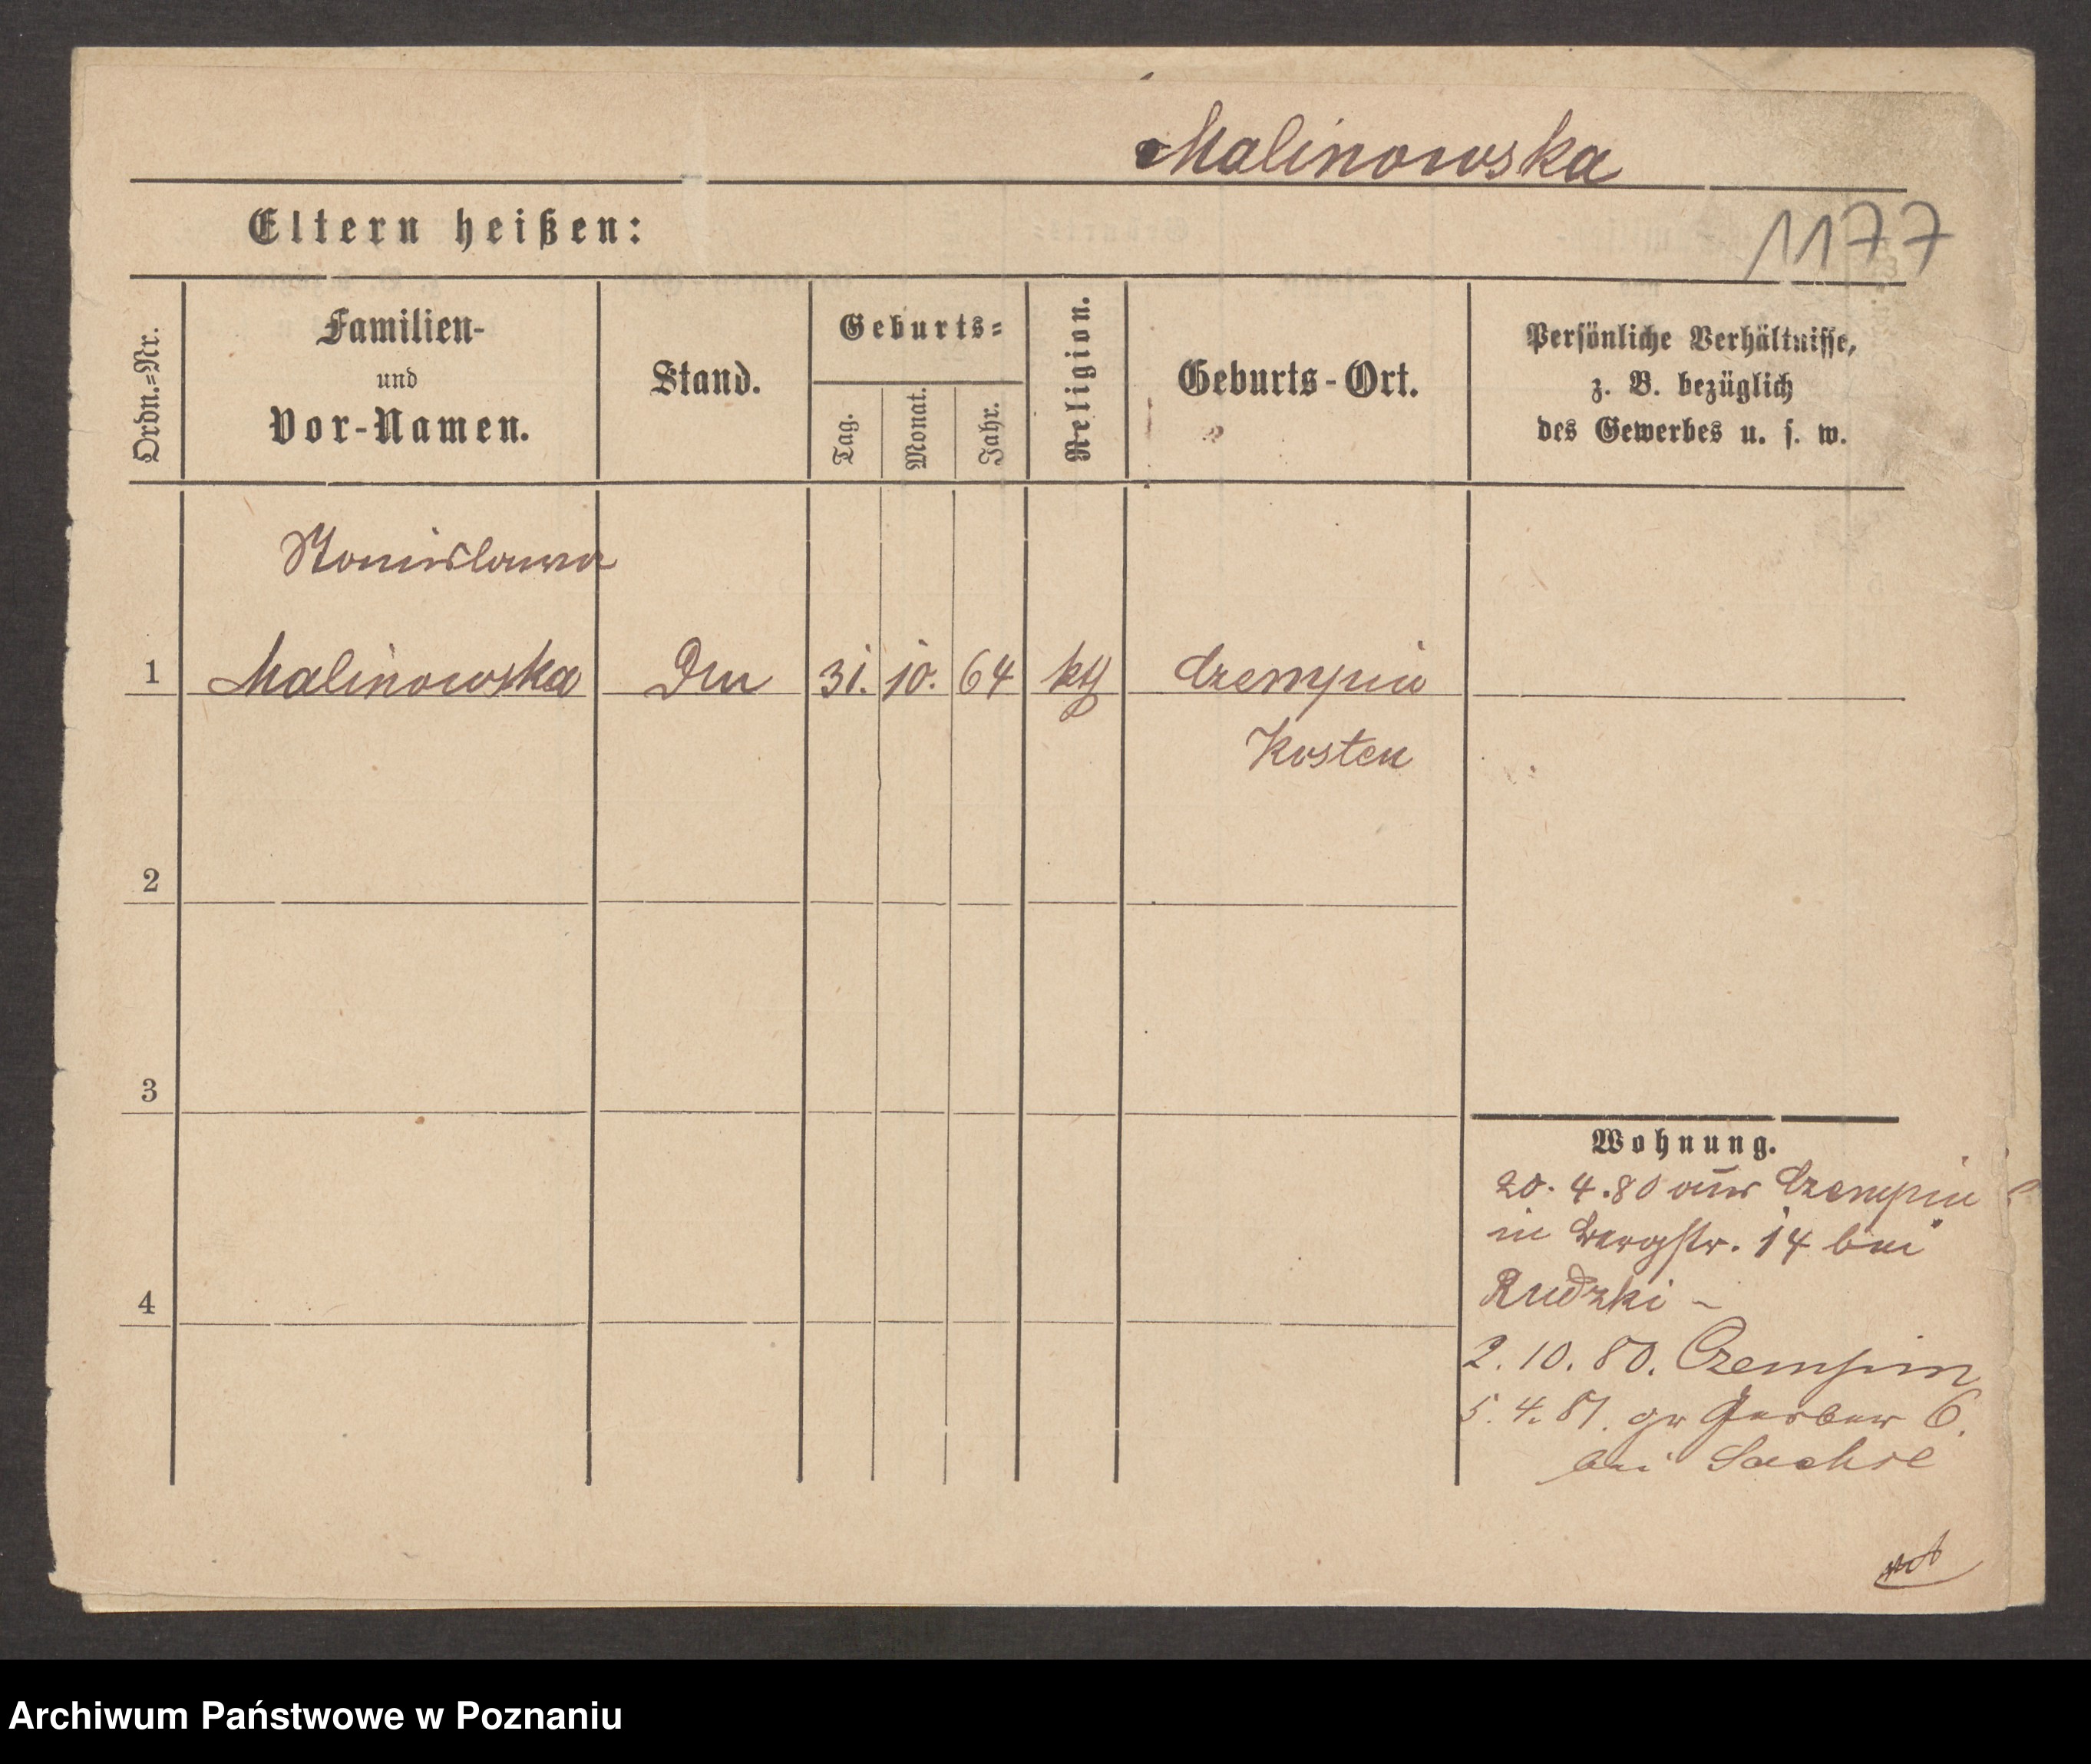 Malinowska
Eltern heißen:
1177
Ordn.=Nr.
Familien-
und
Vor-Namen.
Stand.
Geburts=
Tag.
Monat.
Jahr.
Religion.
Geburts-Ort.
Persönliche Verhältnisse,
z. B. bezüglich
des Gewerbes u. s. w.
Stanislawa
1 Malinowska 31. 10. 64 kth Czempin
Kosten
2
3
4
Wohnung.
20. 4. 80 aus Czempin
in Bergstr. 14 bei
Rudzki -
2. 10. 80. Czempin
5. 4. 81. gr Gerber 6.
bei Sachse
Archiwum Państwowe w Poznaniu